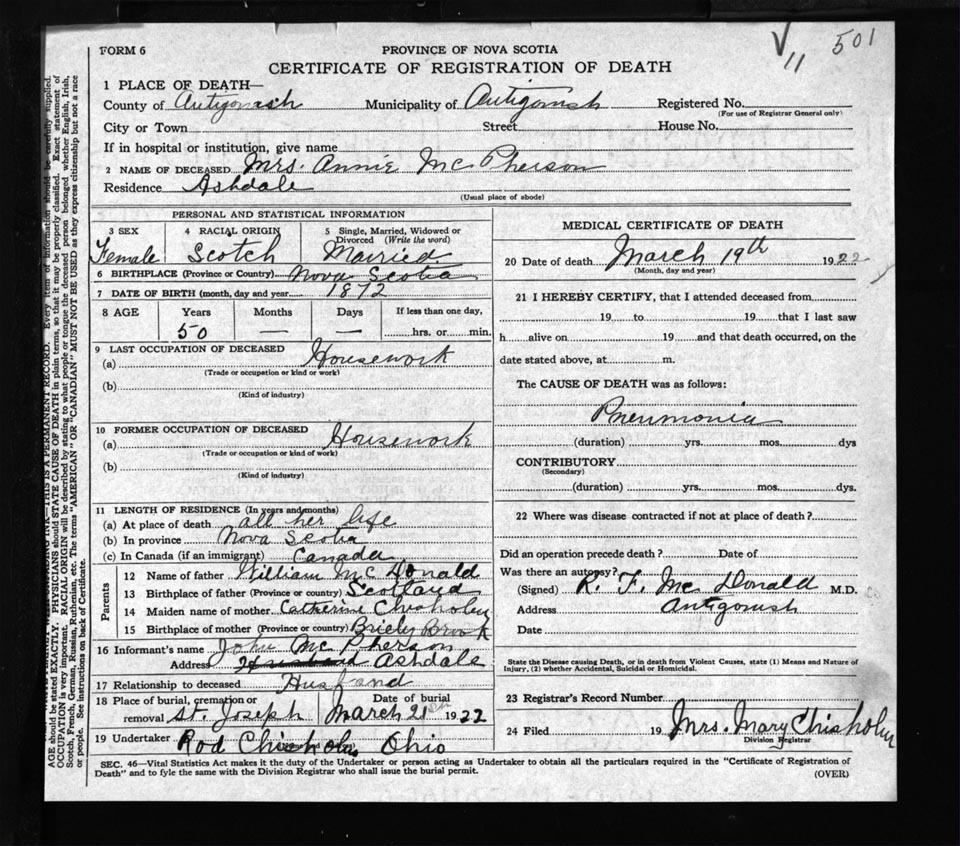 V 11 501
FORM 6
PROVINCE OF NOVA SCOTIA
CERTIFICATE OF REGISTRATION OF DEATH
1 PLACE OF DEATH—
County of Antigonish Municipality of Antigonish Registered No.
(For use of Registrar General only)
City or Town Street House No.
If in hospital or institution, give name
2 NAME OF DECEASED Mrs. Annie McPherson
Residence Ashdale
(Usual place of abode)
PERSONAL AND STATISTICAL INFORMATION
3 SEX 4 RACIAL ORIGIN 5 Single, Married, Widowed or
Divorced (Write the word)
Female Scotch Married
6 BIRTHPLACE (Province or Country) Nova Scotia
7 DATE OF BIRTH (month, day and year) 1872
8 AGE Years Months Days If less than one day,
50 — — hrs. or min.
9 LAST OCCUPATION OF DECEASED
(a) Housework
(Trade or occupation or kind or work)
(b)
(Kind of industry)
10 FORMER OCCUPATION OF DECEASED
(a) Housework
(Trade or occupation or kind of work)
(b)
(Kind of industry)
11 LENGTH OF RESIDENCE (In years and months)
(a) At place of death all her life
(b) In province Nova Scotia
(c) In Canada (if an immigrant) Canada
Parents
12 Name of father William McDonald
13 Birthplace of father (Province or country) Scotland
14 Maiden name of mother Catherine Chisholm
15 Birthplace of mother (Province or country) Briely Brook
16 Informant's name John McPherson
Address Husband Ashdale
17 Relationship to deceased Husband
18 Place of burial, cremation or Date of burial
removal St. Joseph March 21st 1922
19 Undertaker Rod Chisholm Ohio
MEDICAL CERTIFICATE OF DEATH
20 Date of death March 19th 1922
(Month, day and year)
21 I HEREBY CERTIFY, that I attended deceased from
19 to 19 that I last saw
h alive on 19 and that death occurred, on the
date stated above, at m.
The CAUSE OF DEATH was as follows:
Pneumonia
(duration) yrs. mos. dys
CONTRIBUTORY
(Secondary)
(duration) yrs. mos. dys.
22 Where was disease contracted if not at place of death?
Did an operation precede death? Date of
Was there an autopsy?
(Signed) R. F. McDonald M.D.
Address Antigonish
Date
State the Disease causing Death, or in death from Violent Causes, state (1) Means and Nature of
Injury, (2) whether Accidental, Suicidal or Homicidal.
23 Registrar's Record Number
24 Filed 19 Mrs. Mary Chisholm
Division Registrar
SEC. 46—Vital Statistics Act makes it the duty of the Undertaker or person acting as Undertaker to obtain all the particulars required in the "Certificate of Registration of
Death" and to fyle the same with the Division Registrar who shall issue the burial permit.
(OVER)
THIS IS A PERMANENT RECORD. Every item of information should be carefully supplied.
AGE should be stated EXACTLY. PHYSICIANS should STATE CAUSE OF DEATH in plain terms, so that it may be properly classified. Exact statement of
OCCUPATION is very important. RACIAL ORIGIN will be described by stating to what people or tongue the deceased person belonged whether English, Irish,
Scotch, French, German, Russian, Ruthenian, etc. The terms "AMERICAN" OR "CANADIAN" MUST NOT BE USED as they express citizenship but not a race
or people. See instructions on back of Certificate.